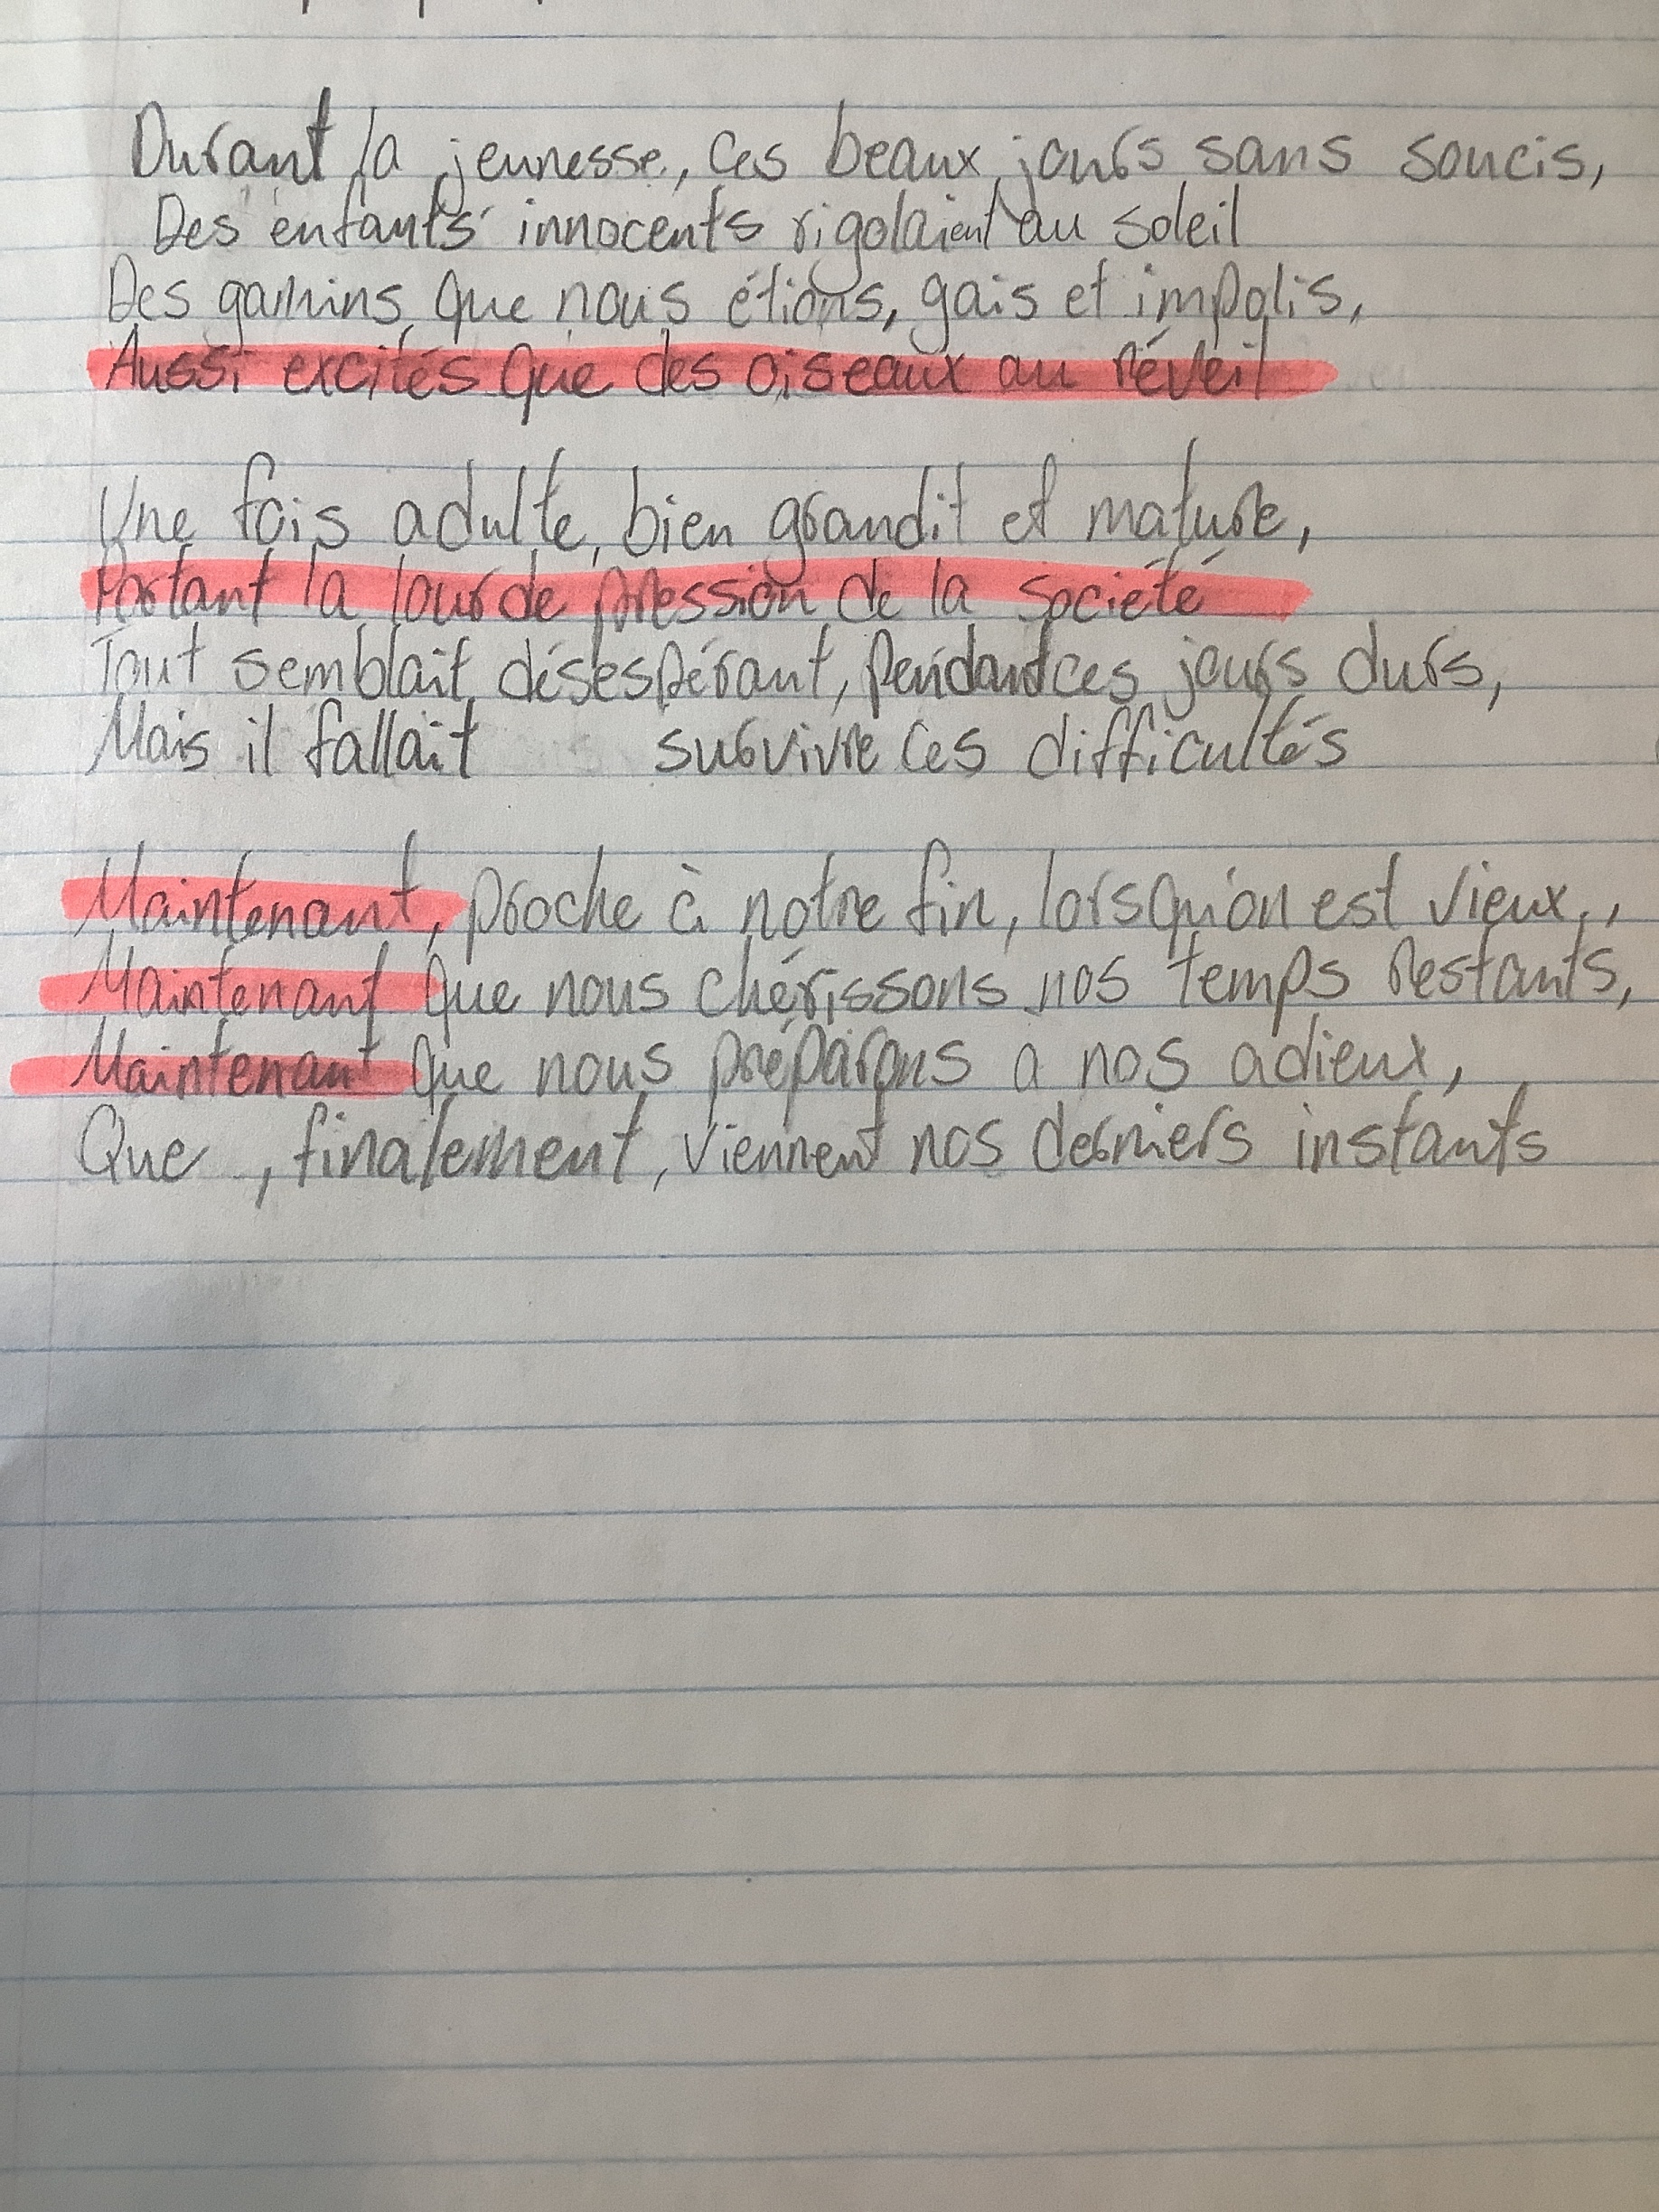 Durant la jeunesse, ces beaux jours sans soucis,
Des enfants innocents rigolaient au soleil
Des gamins que nous étions, gais et impolis,
Aussi excités que des oiseaux au réveil
Une fois adulte, bien grandit et mature,
Portant la lourde pression de la société
Tout semblait désespérant, pendant ces jours durs,
Mais il fallait survivre ces difficultés
Maintenant, proche à notre fin, lorsqu'on est vieux,,
Maintenant que nous chérissons nos temps restants,
Maintenant que nous préparons a nos adieux,
Que , finalement, viennent nos derniers instants